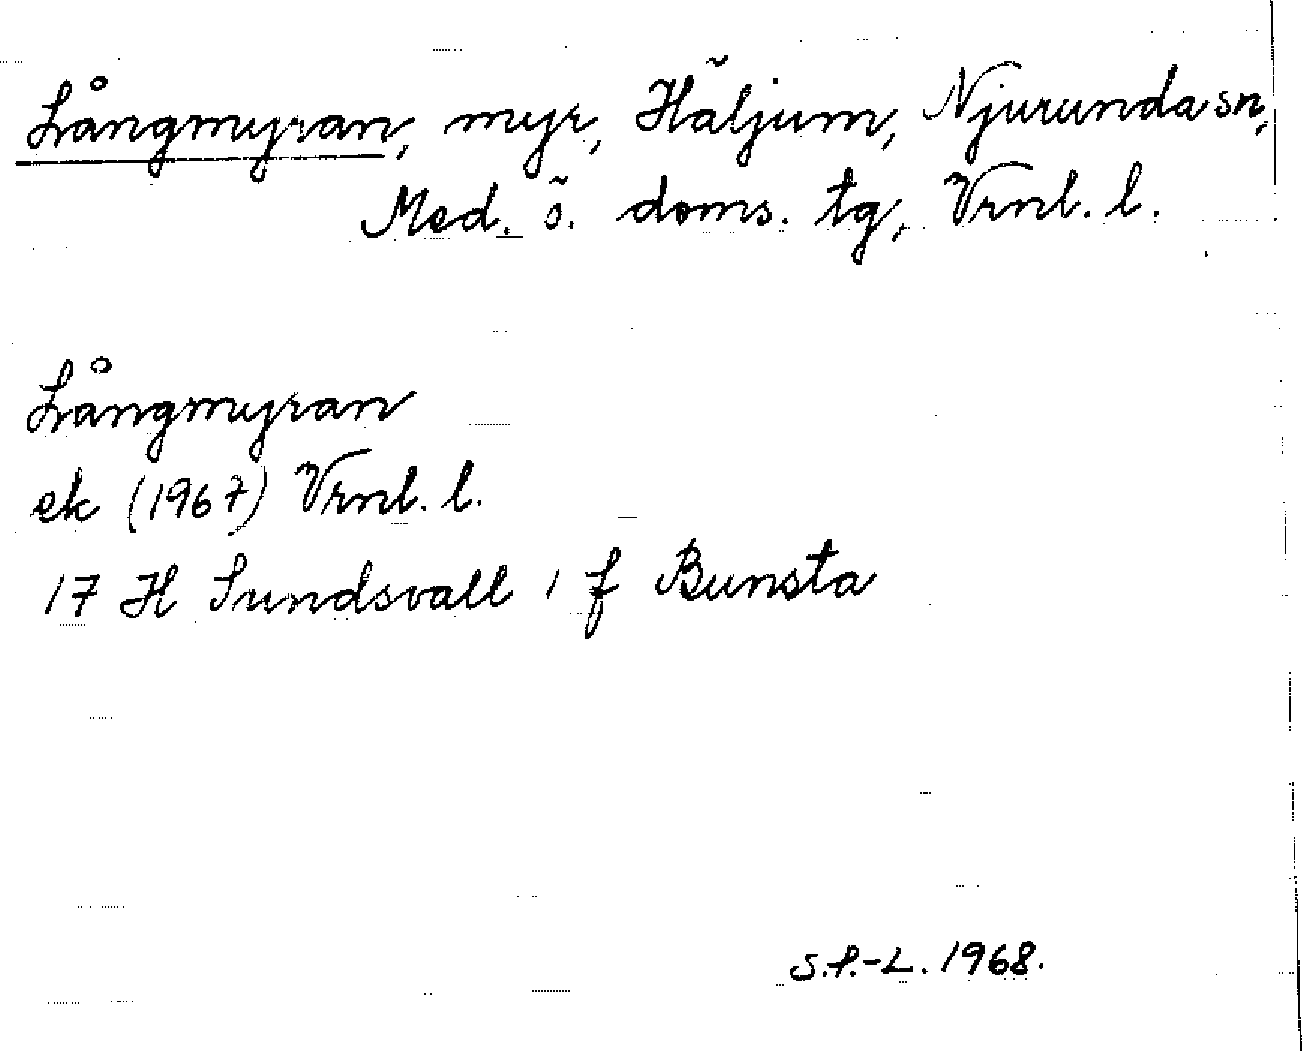 Långmyran, myr, Häljum, Njurunda sn,
Med. ö. doms. tg, Vrnl. l.
Långmyran
ek (1967) Vrnl. l.
17 H Sundsvall 1 f Bunsta
S.P.-L. 1968.